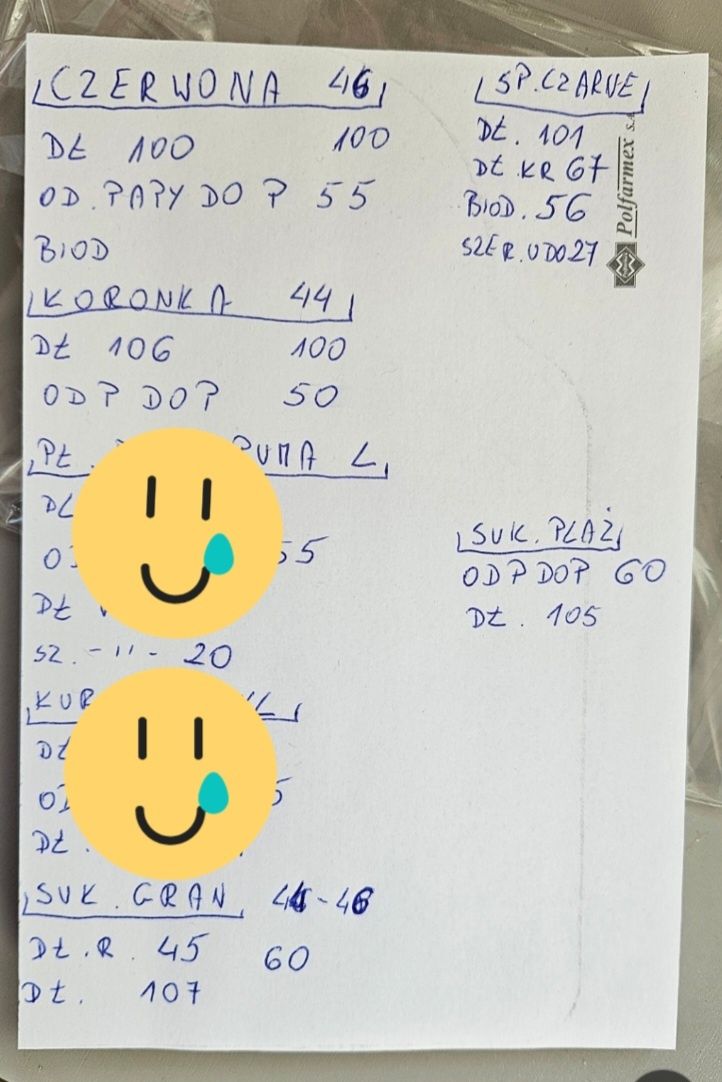 CZERWONA 46
DŁ 100 100
OD. PAPY DO P 55
BIOD
KORONKA 44
DŁ 106 100
OD P DO P 50
PŁ. PUMA L
DŁ
55
DŁ
SZ. -11- 20
KUR L
DŁ
5
DŁ.
SUK. GRAN. 44-46
DŁ.R. 45 60
DŁ. 107
SP. CZARNE
DŁ. 101
DŁ KR 67
BIOD. 56
SZER. UDO 27
Polfarmex S.A.
SUK. PLAŻ
OD P DO P 60
DŁ. 105